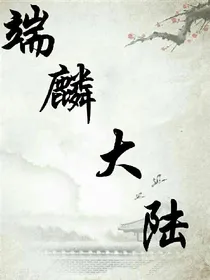 端麟大陆